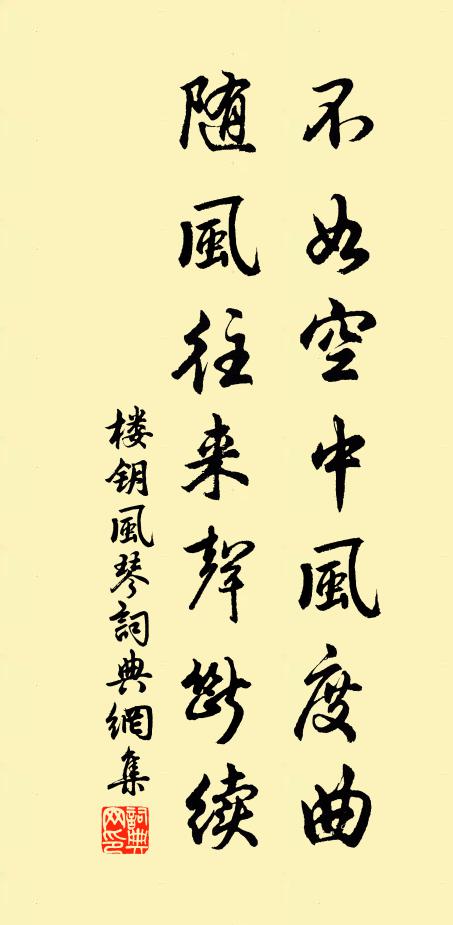 不如空中風度曲
随風往来聲斷续
楼钥風琴詞典網集
詞典网印